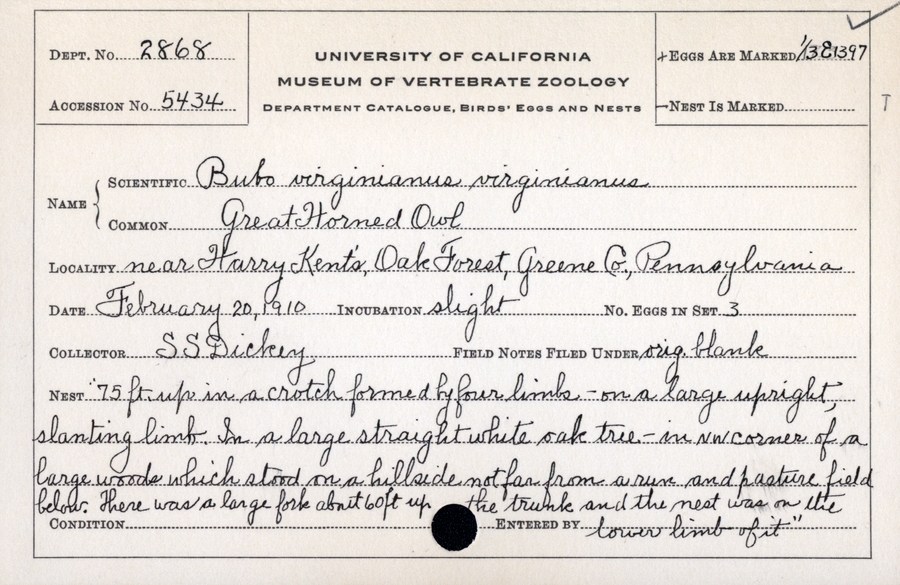 DEPT. No. 2868
ACCESSION No. 5434
UNIVERSITY OF CALIFORNIA
MUSEUM OF VERTEBRATE ZOOLOGY
DEPARTMENT CATALOGUE, BIRDS' EGGS AND NESTS
+EGGS ARE MARKED 1/3E1397
—NEST IS MARKED
T
NAME
SCIENTIFIC Bubo virginianus virginianus
COMMON Great Horned Owl
LOCALITY near Harry Kent's, Oak Forest, Greene Co., Pennsylvania
DATE February 20, 1910 INCUBATION slight No. EGGS IN SET 3
COLLECTOR S S Dickey FIELD NOTES FILED UNDER orig. blank
NEST "75 ft. up in a crotch formed by four limbs - on a large upright,
slanting limb. In a large straight white oak tree - in NW corner of a
large woods which stood on a hillside not far from a run and pasture field
below. There was a large fork about 60 ft up the trunk and the nest was on the
CONDITION ENTERED BY lower limb of it"